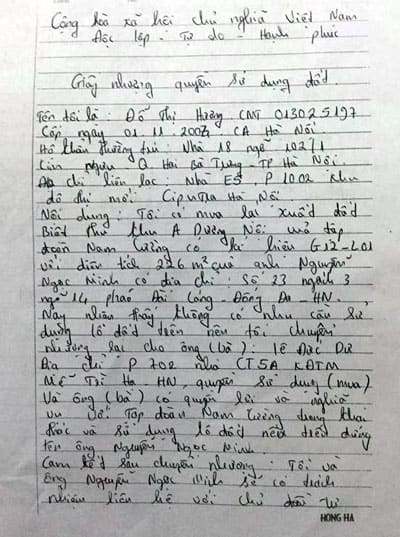 Cộng hòa xã hội chủ nghĩa Việt Nam
Độc lập - Tự do - Hạnh phúc
Giấy nhượng quyền sử dụng đất.
Tên tôi là: Đỗ Thị Hường CMT 013025197
Cấp ngày 01.11.2007 CA Hà Nội.
Hộ khẩu thường trú: Nhà 18 ngõ 102/1
Q Hai Bà Trưng - TP Hà Nội.
chỉ liên lạc: Nhà E5, P 1002 Khu
đô thị mới: Ciputra Hà Nội.
Nội dung: Tôi có mua lại xuất đất
Biệt thự khu A Dương Nội của tập
đoàn Nam Cường có kí hiệu G12-L01
với diện tích 226 m² của anh Nguyễn
Ngọc Minh có địa chỉ: Số 23 ngách 3
ngõ 14 pháo Đài Láng - Đống Đa - HN.
Nay nhận thấy không có nhu cầu sử
dụng lô đất trên nên tôi chuyển
nhượng lại cho ông (bà): lê Đức Dư
Địa chỉ P 702 nhà CT5A KĐTM
Mễ Trì Hạ - HN, quyền sử dụng (mua)
Và ông (bà) có quyền lợi và nghĩa
vụ với Tập đoàn Nam Cường trong khai
thác và sử dụng lô đất nêu trên đứng
tên ông Nguyễn Ngọc Minh.
Cam kết sau chuyển nhượng: Tôi và
ông Nguyễn Ngọc Minh sẽ có trách
nhiệm liên hệ với chủ đầu tư
HONG HA